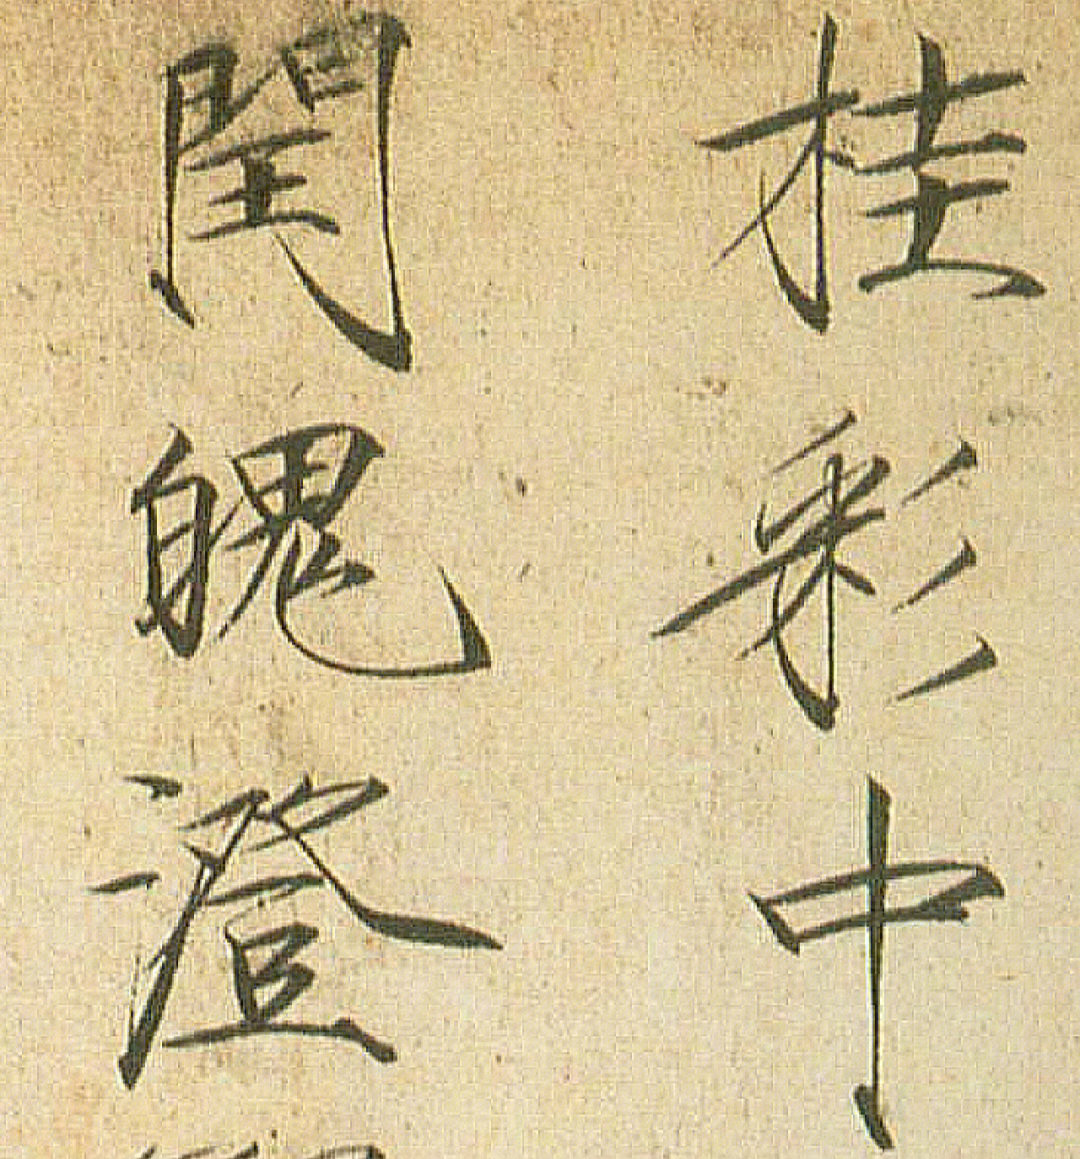 桂彩中
閏魄澄